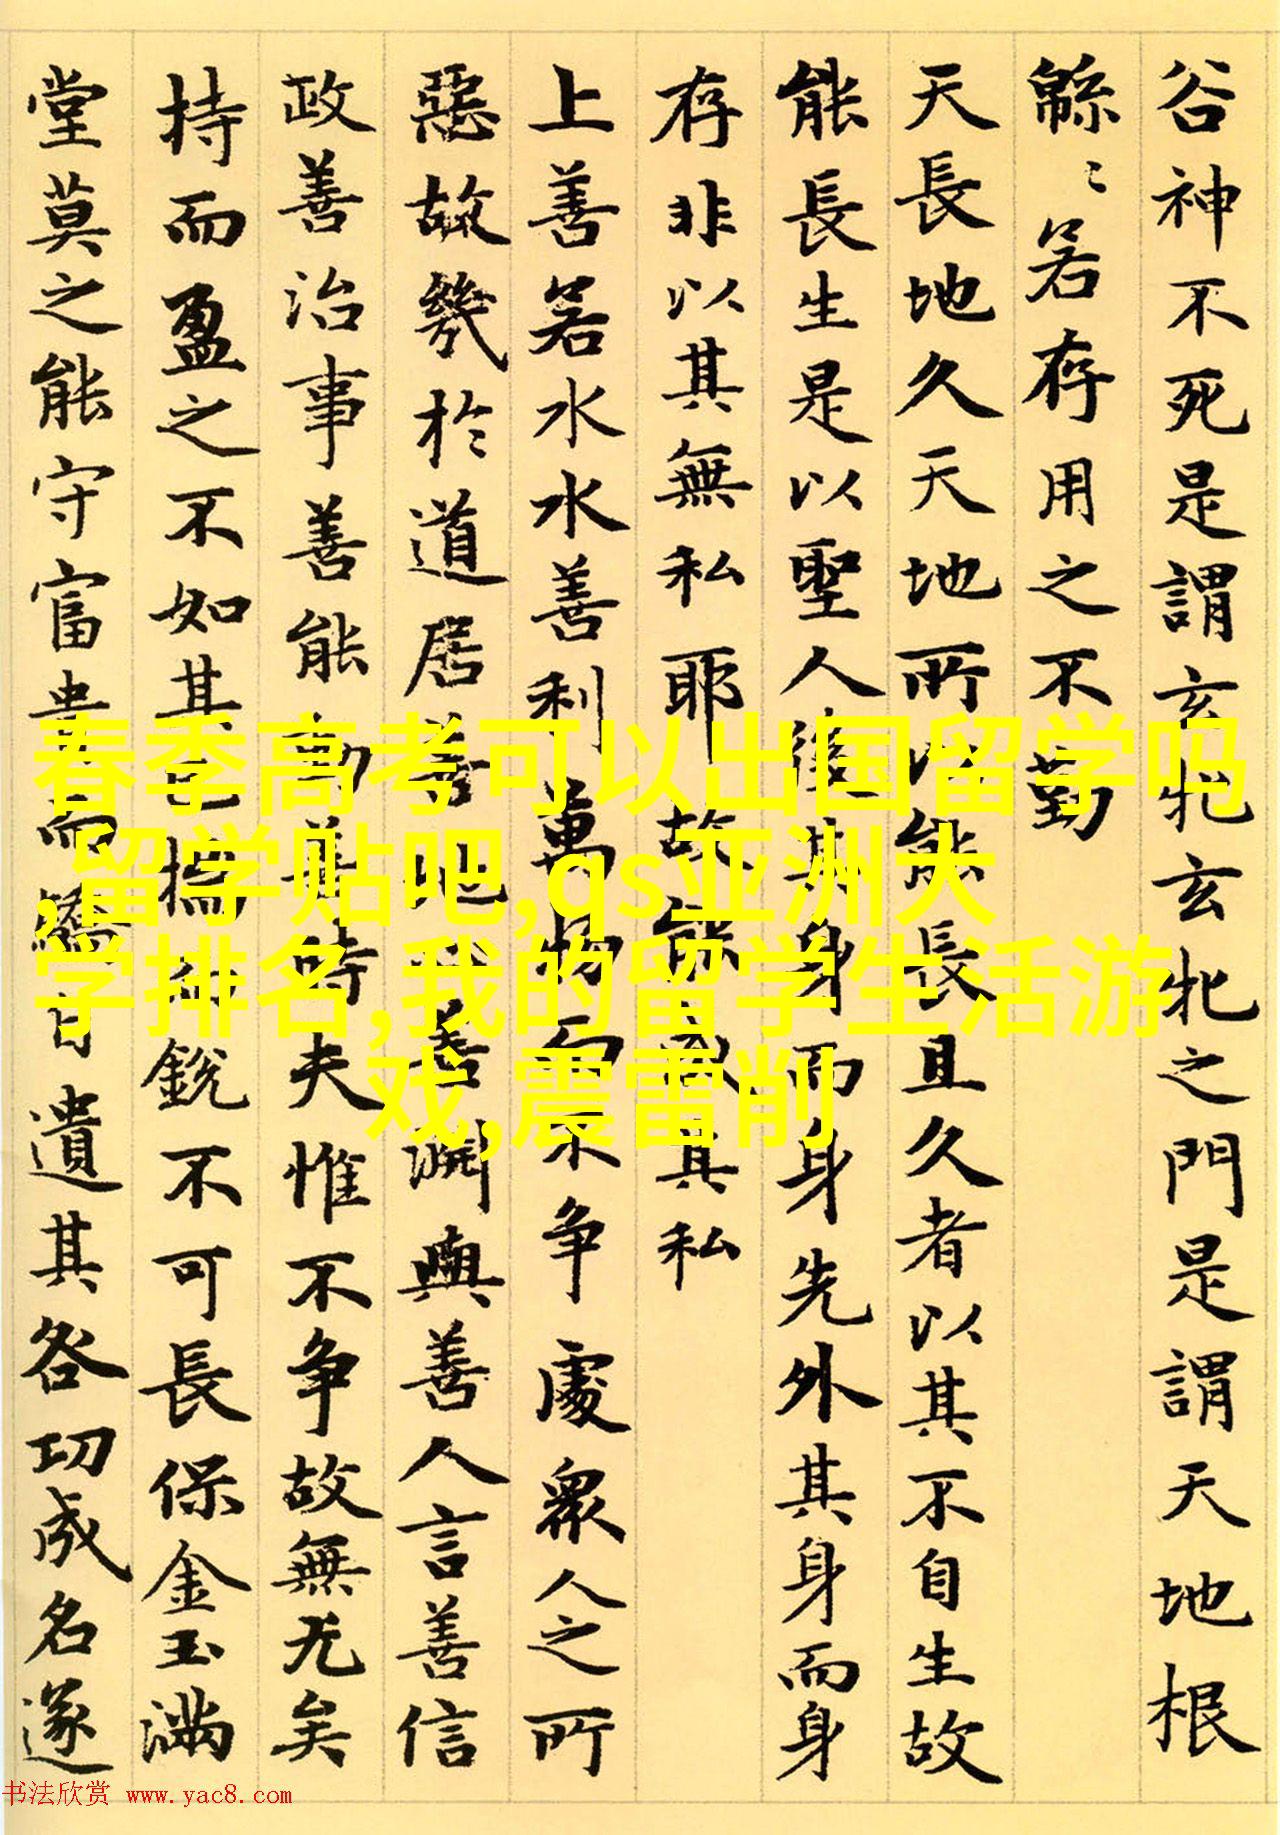 谷神不死是謂玄牝玄牝之門是謂天地根
緜〻若存用之不勤
天長地久天地所以能長且久者以其不自生故
能長生是以聖人後其身而身先外其身而身
存非以其無私耶故能成其私
上善若水水善利萬物而不争處衆人之所
惡故幾於道居善地心善淵與善人言善信
政善治事善能動善時夫惟不争故無尤矣
持而盈之不如其已揣而銳不可長保金玉滿
堂莫之能守富貴而驕自遺其咎功成名遂
春季高考可以出国留学吗
,留学贴吧,qs亚洲大
学排名,我的留学生活游
戏,震雷削
书法欣赏 www.yac8.com